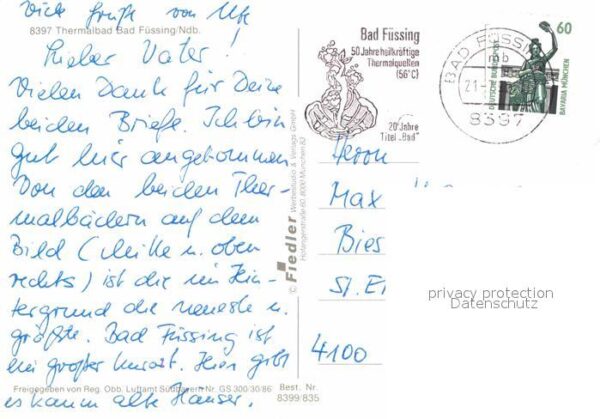 Viele Grüße von Ute
8397 Thermalbad Bad Füssing/Ndb.
Lieber Vater!
Vielen Dank für Deine
beiden Briefe. Ich bin
gut hier angekommen.
Von den beiden Ther-
malbädern auf dem
Bild (Mitte u. oben
rechts) ist die im Hin-
tergrund die neueste u.
größte. Bad Füssing ist
ein großer Kurort. Hier gibt
es kaum alte Häuser.
Freigegeben von Reg. Obb. Luftamt Südbayern Nr. GS 300/30/86
Best. Nr.
8399/835
© Fiedler Werbestudio & Verlags GmbH
8000 München 82
Bad Füssing
50 Jahre heilkräftige
Thermalquellen
(56°C)
20 Jahre
Titel „Bad"
BAD FÜSSING
mb
21.
8397
60
DEUTSCHE BUNDESPOST
BAVARIA MÜNCHEN
Herrn
Max
Bies
4100
privacy protection
Datenschutz